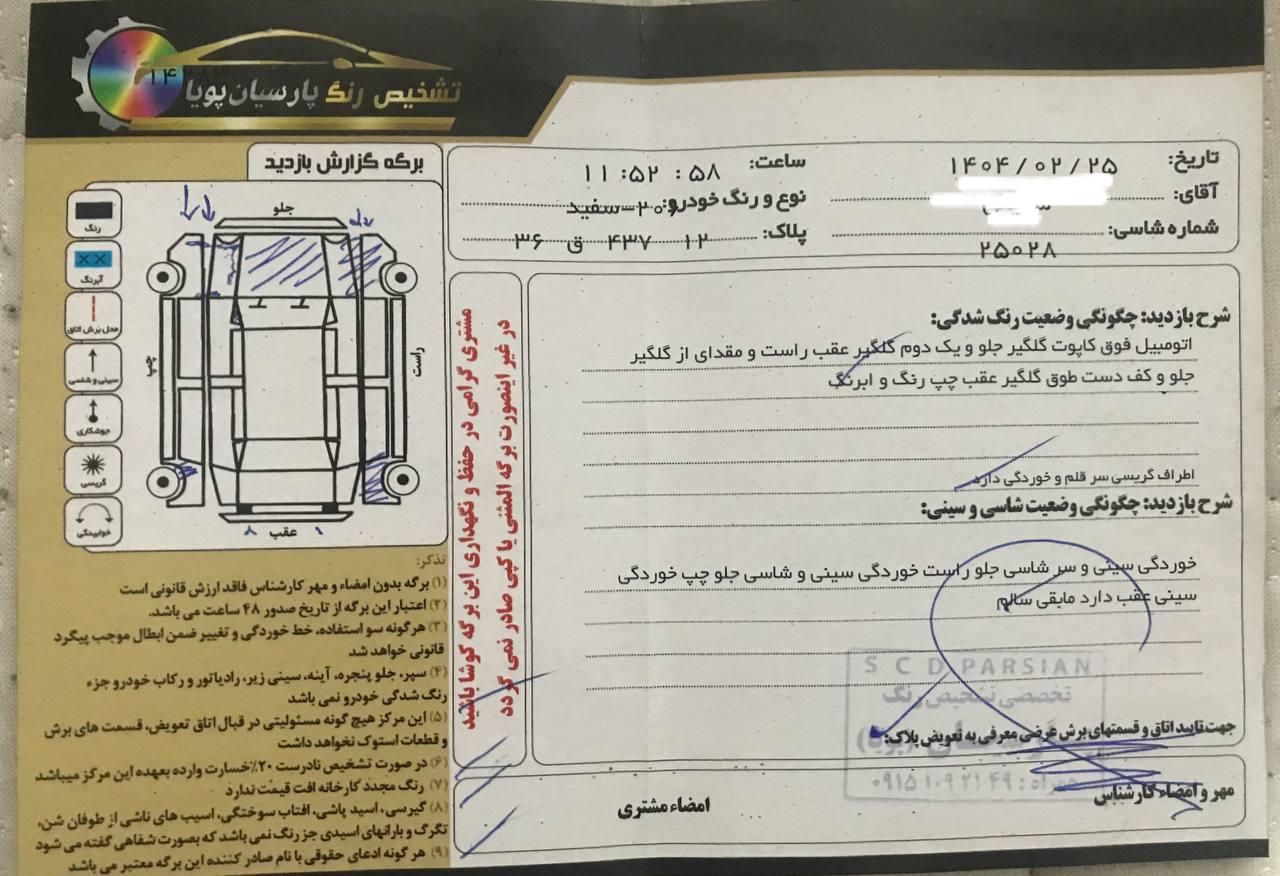 تشخیص رنگ پارسیان پویا
برگه گزارش بازدید
تاریخ: ۱۴۰۴/۰۲/۲۵
ساعت: ۱۱:۵۲:۵۸
آقای:
نوع و رنگ خودرو: -سفید
شماره شاسی: ۲۵۰۲۸
پلاک: ۱۲ ۴۳۷ ق ۳۶
جلو
راست
چپ
عقب
رنگ
آبرنگ
محل برش اتاق
سینی و شاسی
جوشکاری
گریسی
خوابیدگی
مشتری گرامی در حفظ و نگهداری این برگه کوشا باشید
در غیر اینصورت برگه المثنی یا کپی صادر نمی گردد
شرح بازدید: چگونگی وضعیت رنگ شدگی:
اتومبیل فوق کاپوت گلگیر جلو و یک دوم گلگیر عقب راست و مقدای از گلگیر
جلو و کف دست طوق گلگیر عقب چپ رنگ و ابرنگ
اطراف گریسی سر قلم و خوردگی دارد
شرح بازدید: چگونگی وضعیت شاسی و سینی:
خوردگی سینی و سر شاسی جلو راست خوردگی سینی و شاسی جلو چپ خوردگی
سینی عقب دارد مابقی سالم
S C D PARSIAN
تخصصی تشخیص رنگ
(پویا)
همراه: ۰۹۱۵ ۱۰۹ ۲۱ ۴۹
جهت تایید اتاق و قسمتهای برش عرضی معرفی به تعویض پلاک:
مهر و امضاء کارشناس
امضاء مشتری
تذکر:
۱) برگه بدون امضاء و مهر کارشناس فاقد ارزش قانونی است
۲) اعتبار این برگه از تاریخ صدور ۴۸ ساعت می باشد.
۳) هرگونه سو استفاده، خط خوردگی و تغییر ضمن ابطال موجب پیگرد
قانونی خواهد شد
۴) سپر، جلو پنجره، آینه، سینی زیر، رادیاتور و رکاب خودرو جزء
رنگ شدگی خودرو نمی باشد
۵) این مرکز هیچ گونه مسئولیتی در قبال اتاق تعویض، قسمت های برش
و قطعات استوک نخواهد داشت
۶) در صورت تشخیص نادرست ۲۰٪خسارت وارده بعهده این مرکز میباشد
۷) رنگ مجدد کارخانه افت قیمت ندارد
۸) گیرسی، اسید پاشی، افتاب سوختگی، اسیب های ناشی از طوفان شن،
تگرگ و بارانهای اسیدی جز رنگ نمی باشد که بصورت شفاهی گفته می شود
۹) هر گونه ادعای حقوقی با نام صادر کننده این برگه معتبر می باشد